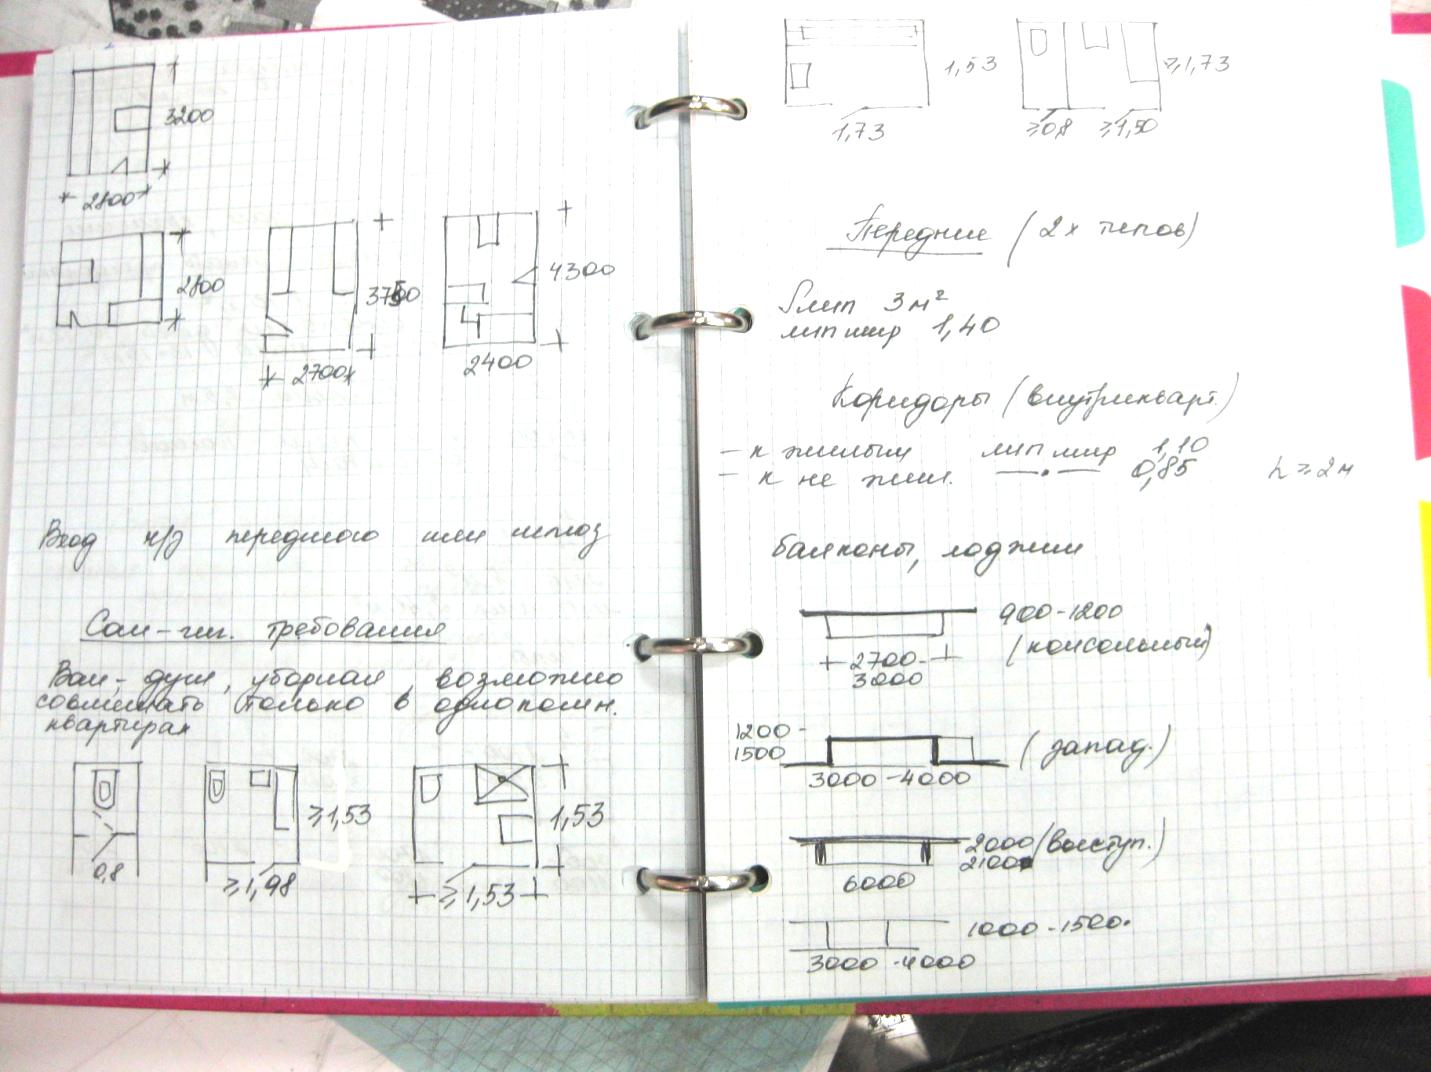 3200
2800
2800
3700
2700
4300
2400
Вход ч/з переднюю или шлюз
Сан-гиг. требования
Ван, душ, уборная, возможно
совмещать только в однокомн.
квартирах
0,8
≥1,53
≥1,98
1,53
≥1,53
1,53
1,73
≥1,73
≥0,8
≥1,50
Передние (2х типов)
Smin 3м²
min шир 1,40
Коридоры (внутрикварт.)
- к жилым min шир 1,10
- к не жил. —·— 0,85 h ≥ 2м
балконы, лоджии
900-1200
(консольный)
2700-
3000
1200-
1500
3000-4000
(запад.)
2000 (выступ.)
2100
6000
1000-1500
3000-4000